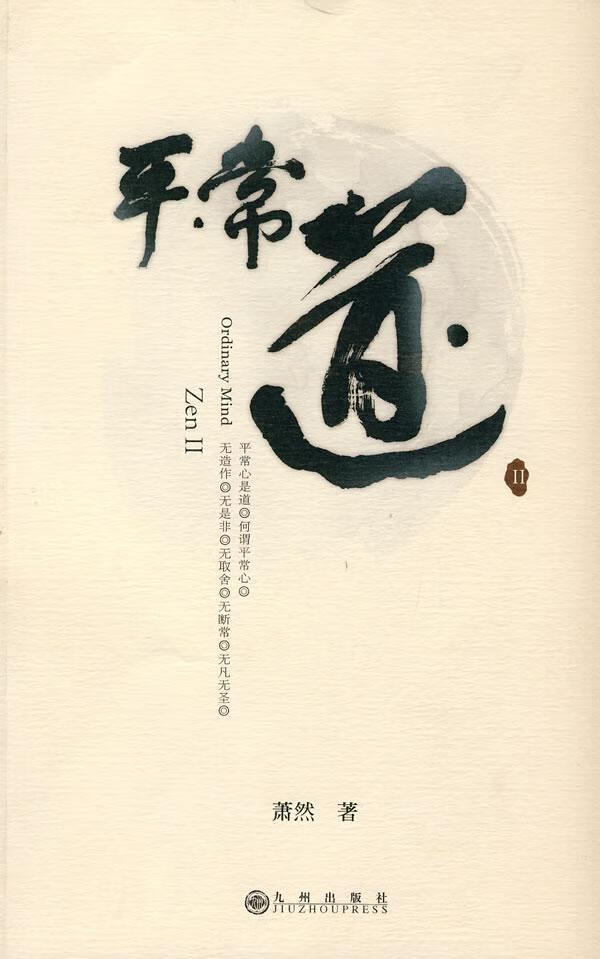 平·常
道
II
Ordinary Mind
Zen II
平常心是道◎何谓平常心◎
无造作◎无是非◎无取舍◎无断常◎无凡无圣◎
萧然 著
九州出版社
JIUZHOUPRESS